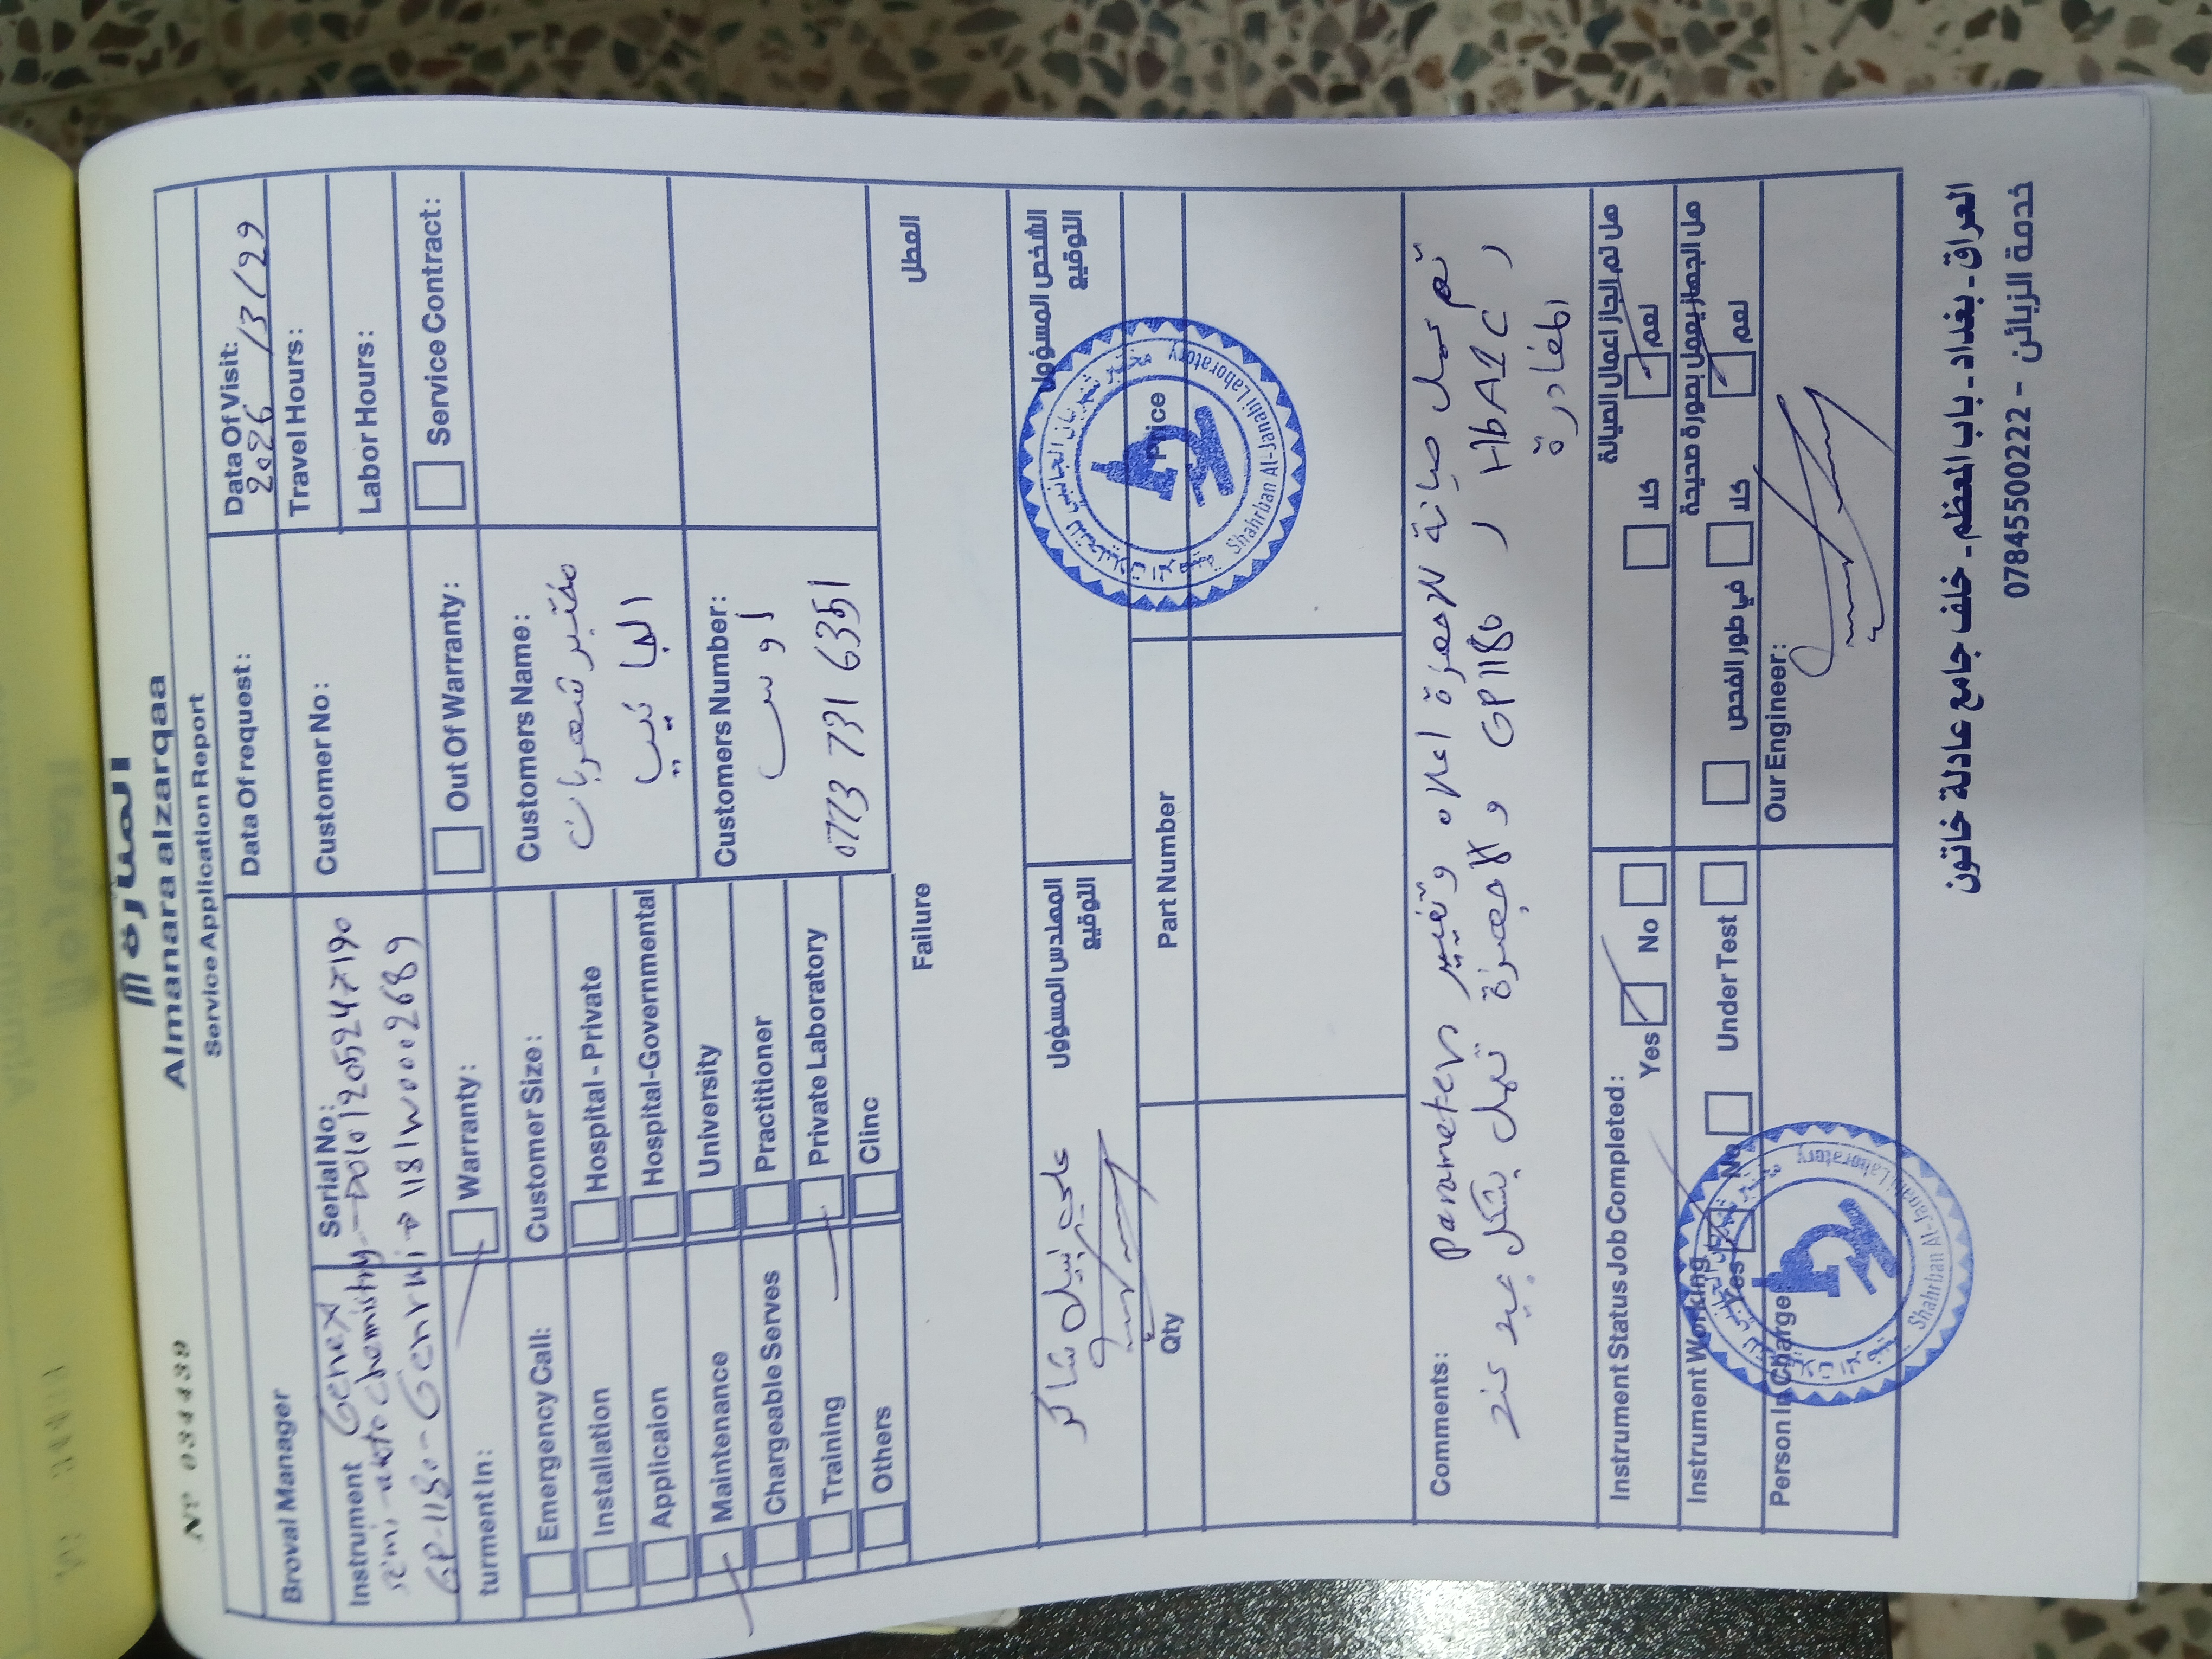 المنارة
Almanara alzarqaa
Nº 034439
Service Application Report
Data Of request:
Data Of Visit:
2026/3/29
Broval Manager
Customer No:
Travel Hours:
Labor Hours:
Instrument Genex
semi-auto chemistry
GP-1180-Genrui
Serial No:
1181W0002689
turment In:
Warranty:
Out Of Warranty:
Service Contract:
Emergency Call:
Installation
Applicaion
Maintenance
Chargeable Serves
Training
Others
Customer Size:
Hospital - Private
Hospital-Governmental
University
Practitioner
Private Laboratory
Clinc
Customers Name:
مختبر شهربان
الجنابي
Customers Number:
اوس
0773 731 6351
Failure
العطل
علي نبيل شاكر
المهندس المسؤول
التوقيع
الشخص المسؤول
التوقيع
Qty
Part Number
Price
Shahrban Al-Janabi Laboratory
Comments:
تم عمل صيانة للاجهزة اعلاه وتغيير Parameters
HbA1C , GP1180 والاجهزة تعمل بشكل جيد عند
المغادرة
Instrument Status Job Completed:
Yes
No
هل تم انجاز اعمال الصيانة
نعم
كلا
Instrument Working
Yes
No
Under Test
هل الجهاز يعمل بصورة صحيحة
نعم
كلا
في طور الفحص
Person In Charge
Our Engineer:
Shahrban Al-Janabi Laboratory
العراق - بغداد - باب المعظم - خلف جامع عادلة خاتون
خدمة الزبائن - 07845500222